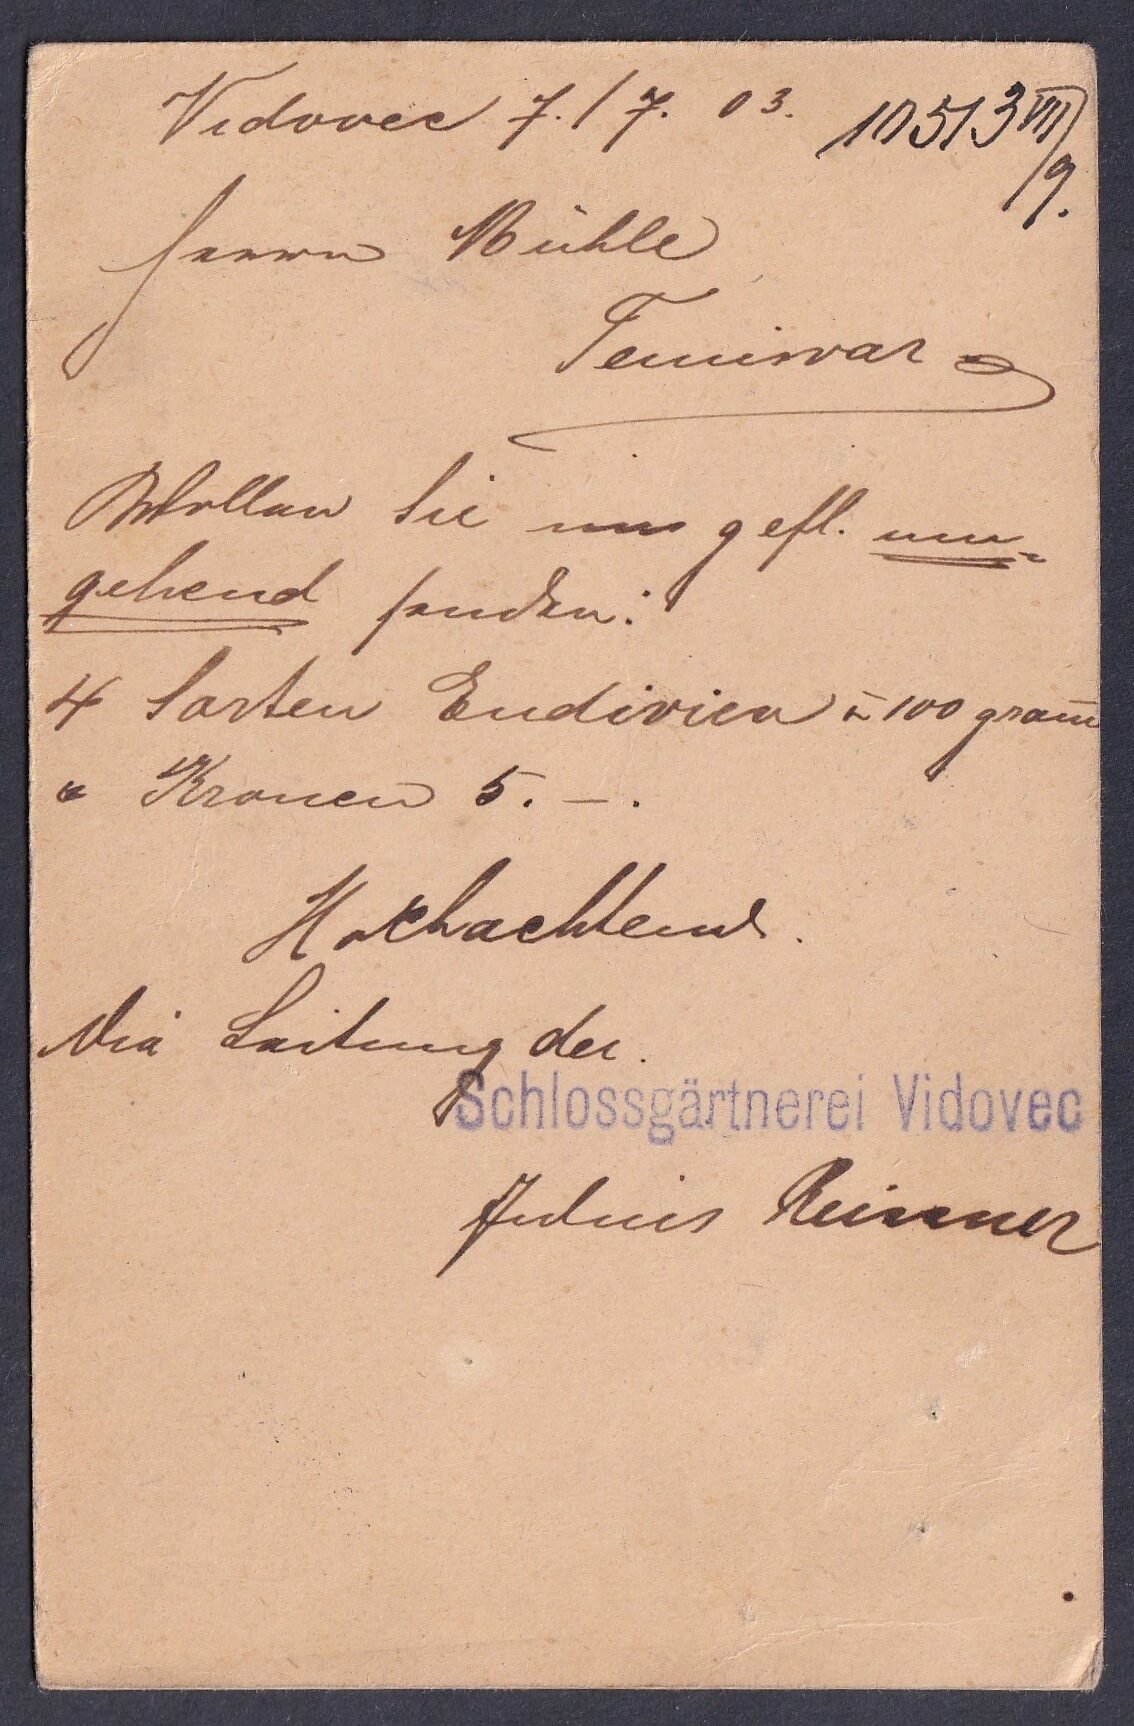 Vidovec 7./7. 03.
10513 VII/9.
Herrn Mühle
Temisvar
Wollen Sie uns gefl. um-
gehend senden:
4 Sorten Endivien à 100 gram
" Kronen 5. – .
Hochachtend.
Die Leitung der
Schlossgärtnerei Vidovec
Julius